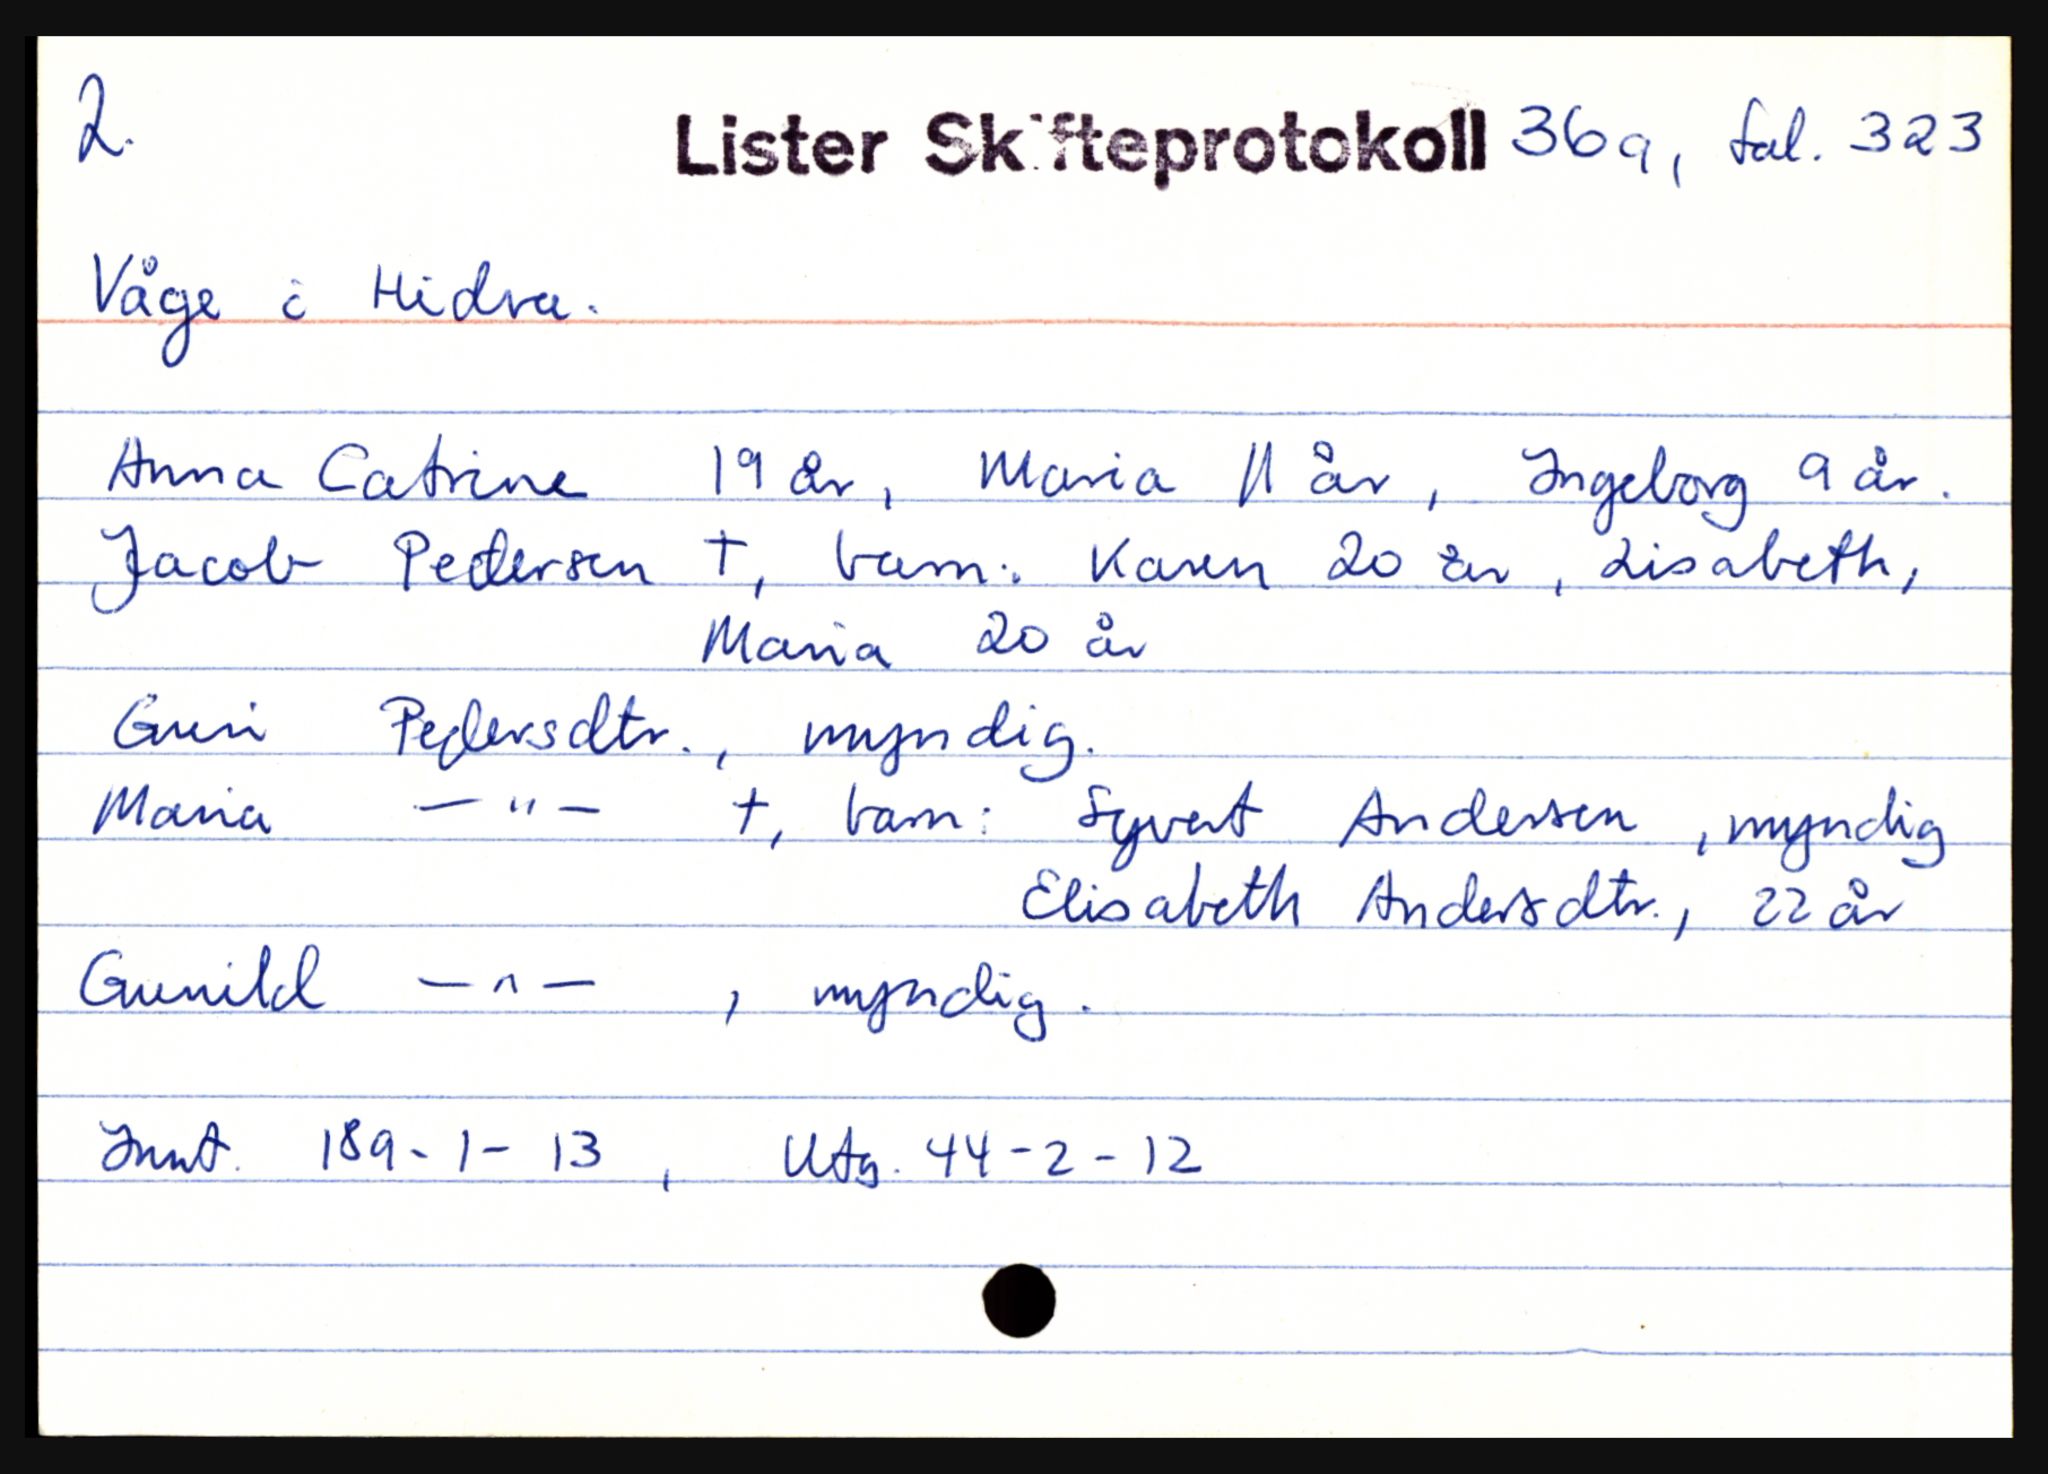 2. Lister Skifteprotokoll 36a, fol. 323
Våge i Hidra.
Anna Catrine 19 år, Maria 11 år, Ingeborg 9 år.
Jacob Pedersen †, barn: Karen 20 år, Lisabeth,
Maria 20 år
Guri Pedersdtr., myndig.
Maria — " — †, barn: Syvert Andersen, myndig
Elisabeth Andersdtr., 22 år
Gunild — " — , myndig.
Innt. 189-1-13, Utg. 44-2-12